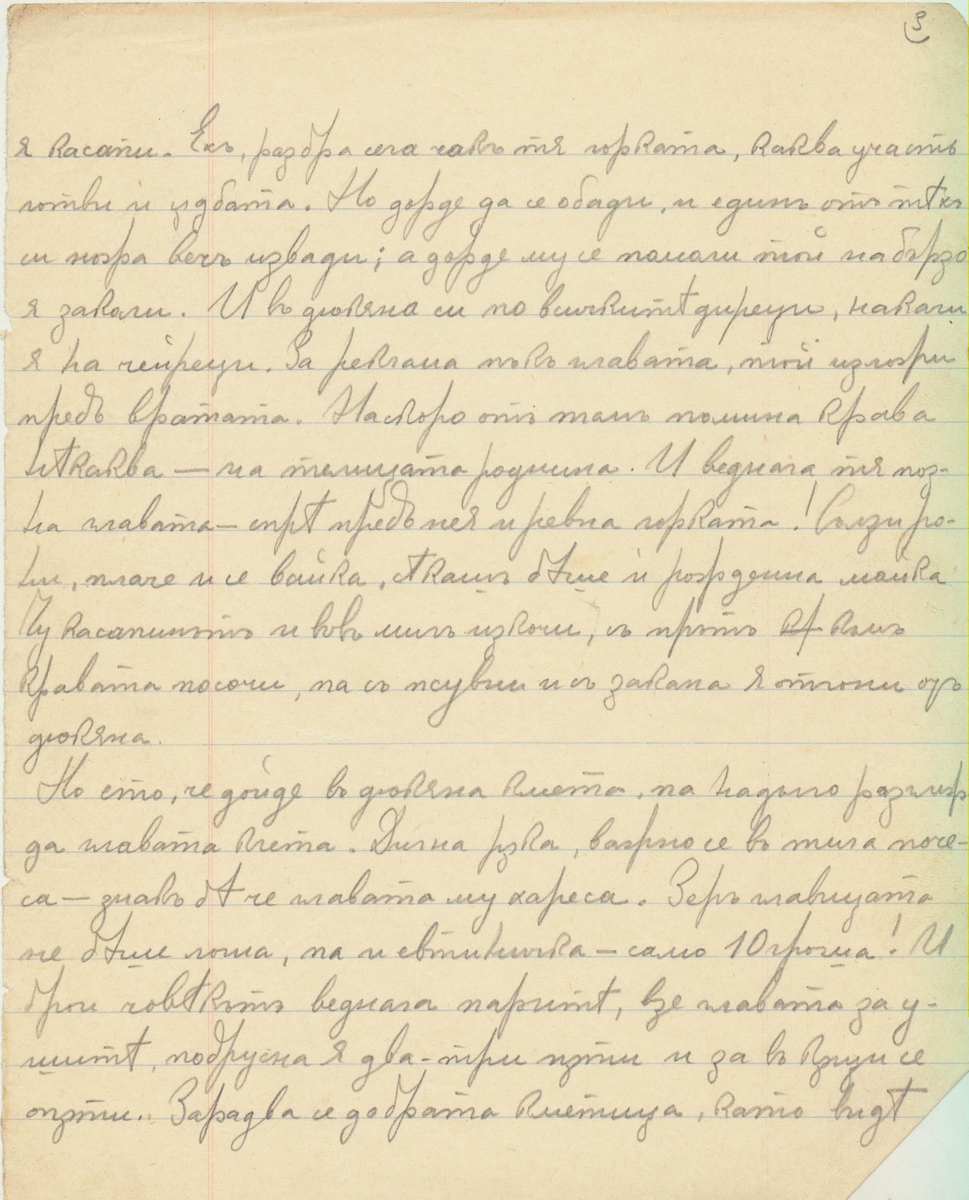 3
я касапи. Ехъ, разбра сега чакъ тя горката, каква участь
готви ѝ сѫдбата. Но дорде да се обади, и единъ отъ тѣхъ
си ножа вечъ извади; а дорде му се помоли той на бързо
я закла. И въ дюкяна си по всичкитѣ диреци, накачи
я на чейреци. За реклама пъкъ главата, той изложи
предъ вратата. Наскоро отъ тамъ помина крава
нѣкаква — на телицата роднина. И веднага тя поз-
на главата — спрѣ предъ нея и ревна горката! Сълзи ро-
ни, плаче и се вайка, сѣкашъ бѣше ѝ рождена майка
Чу касапинътъ и въвъ мигъ изкочи, съ прътъ къмъ
кравата посочи, па съ псувни и съ закана я отгони отъ
дюкяна.
Но ето, че дойде въ дюкяна кмета, па надълго разглеж-
да главата клета. Дигна рѫка, важно се въ тила поче-
са — знакъ бѣ че главата му хареса. Зеръ главицата
не бѣше лоша, па и евтиничка — само 10 гроша! И
брои човѣкътъ веднага паритѣ, взе главата за у-
шитѣ, подрусна я два-три пѫти и за въ кѫщи се
опѫти. Зарадва се добрата кметица, като видѣ